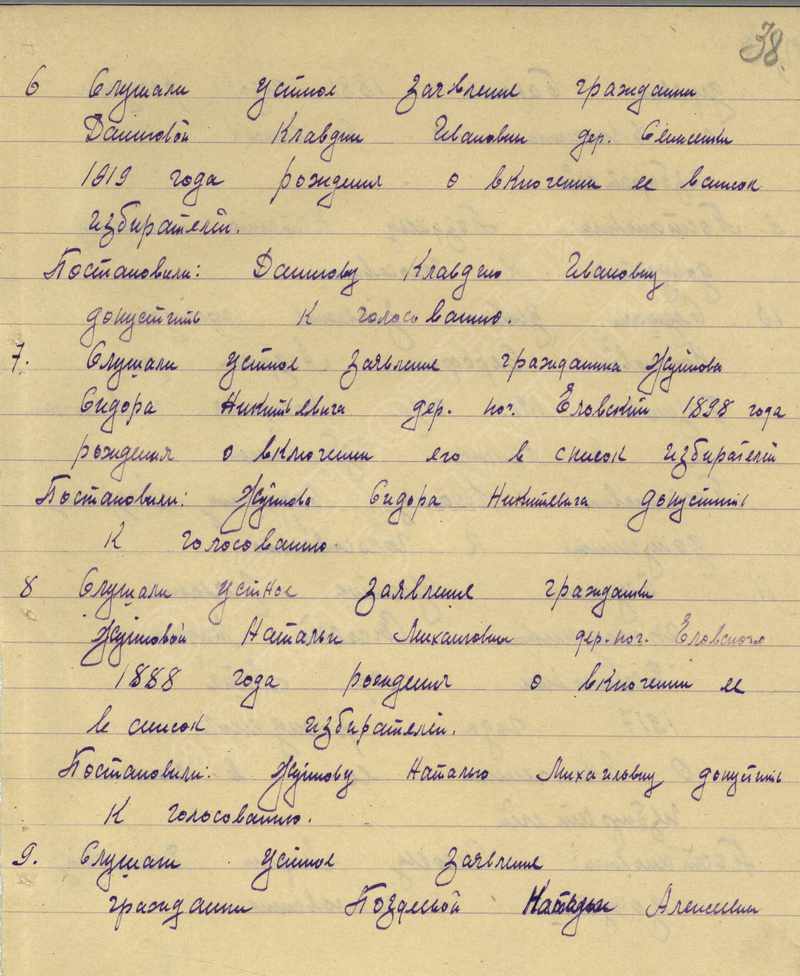 38.
6 Слушали устное заявление гражданки
Даниловой Клавдии Ивановны дер.
1919 года рождения о включении ее в список
избирателей.
Постановили: Данилову Клавдию Ивановну
допустить к голосованию.
7. Слушали устное заявление гражданина
Сидора Никитьевича дер. поч. Еловский 1898 года
рождения о включении его в список избирателей
Постановили: Сидора Никитьевича допустить
к голосованию
8 Слушали устное заявление гражданки
Натальи Михаиловны дер. поч. Еловского
1888 года рождения о включении ее
в список избирателей.
Постановили: Наталью Михаиловну допустить
к голосованию.
9. Слушали устное заявление
гражданки Поздеевой Натальи Алексеевны